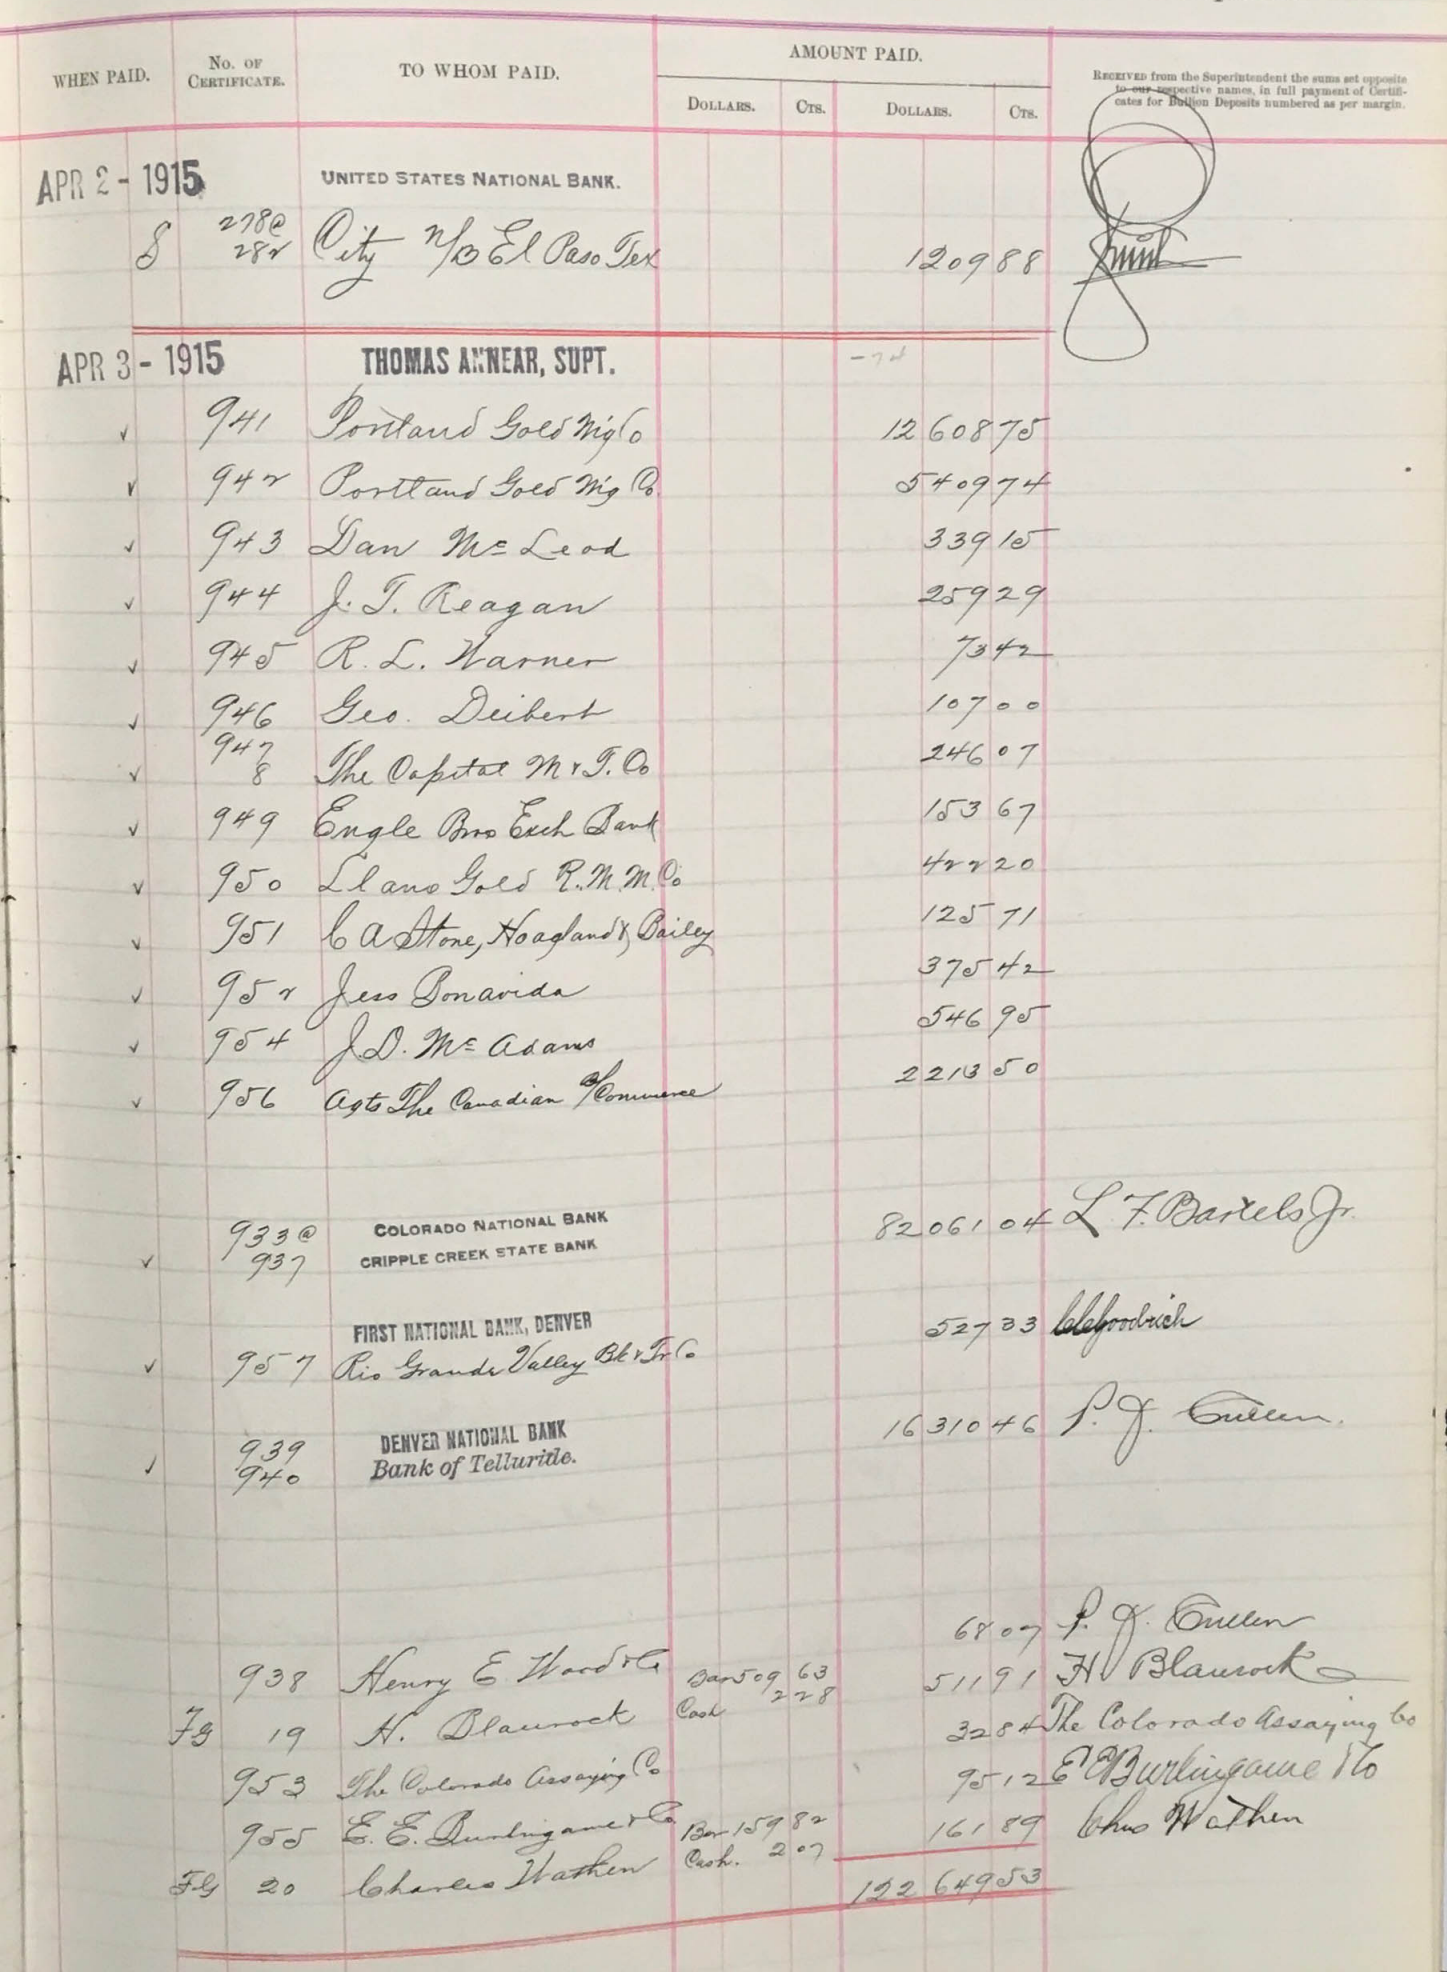 WHEN PAID. No. OF CERTIFICATE. TO WHOM PAID. AMOUNT PAID.
DOLLARS. CTS. DOLLARS. CTS.
RECEIVED from the Superintendent the sums set opposite
to our respective names, in full payment of Certifi-
cates for Bullion Deposits numbered as per margin.
APR 2 - 1915 UNITED STATES NATIONAL BANK.
8 278@ 282 City N/B El Paso Tex 1209 88 Smith
APR 3 - 1915 THOMAS ANNEAR, SUPT.
✓ 941 Portland Gold Mg Co 12608 75
✓ 942 Portland Gold Mg Co 5409 74
✓ 943 Dan Mc Leod 339 15
✓ 944 J. T. Reagan 259 29
✓ 945 R. L. Warner 73 42
✓ 946 Geo. Deibert 107 00
✓ 947 8 The Capital M & T. Co 246 07
✓ 949 Engle Bros Exch Bank 153 67
✓ 950 Llano Gold R. M. M. Co 422 20
✓ 951 C A Stone, Hoagland &, Bailey 125 71
✓ 952 Jess Bonavida 375 42
✓ 954 J. D. Mc Adams 546 95
✓ 956 Agts The Canadian B/Commerce 2213 50
✓ 933@ 937 COLORADO NATIONAL BANK 82061 04 L. F. Bartels Jr.
CRIPPLE CREEK STATE BANK
FIRST NATIONAL BANK, DENVER 527 33 CC Goodrich
✓ 957 Rio Grande Valley Bk & Tr Co
✓ 939 940 DENVER NATIONAL BANK 16310 46 P. J. Cullen.
Bank of Telluride.
938 Henry E. Wood & Co 68 07 P. J. Cullen
FG 19 H. Blaurock Bar 509 63 Cash 2 28 511 91 H. Blaurock
953 The Colorado Assaying Co 32 84 The Colorado Assaying Co
955 E. E. Burlingame & Co 95 12 E E Burlingame & Co
FG 20 Charles Wathen Bar 159 82 Cash. 2 07 161 89 Chas Wathen
122 649 53